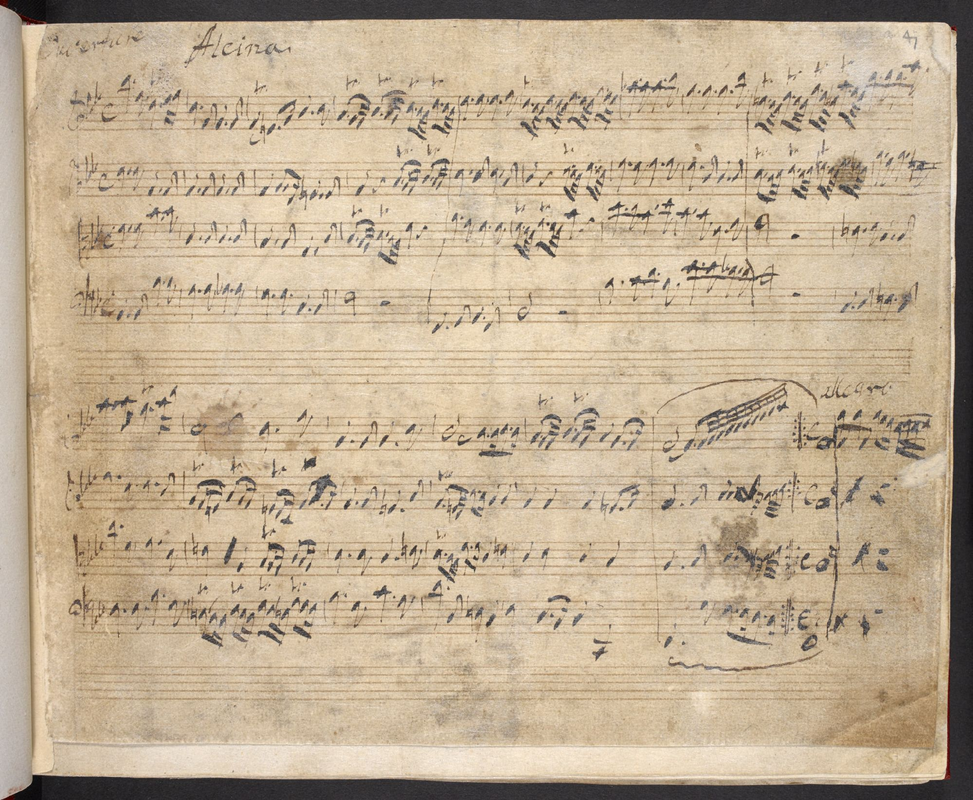 Ouverture Alcina
allegro